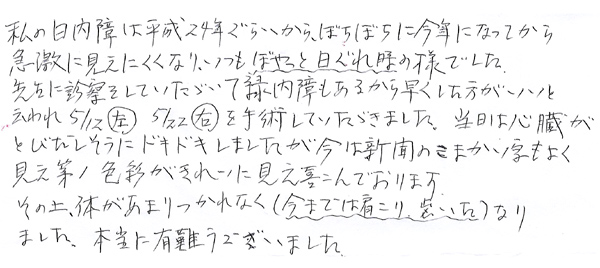 私の白内障は平成24年ぐらいから、ぼちぼちに今年になってから
急激に見えにくくなり、いつもぼやっと日ぐれ時の様でした。
先生に診察をしていただいて緑内障もあるから早くした方がいいと
云われ5/15㊧ 5/22㊨を手術していただきました。当日は心臓が
とびだしそうにドキドキしましたが今は新聞のこまかい字もよく
見え第1色彩がきれいに見え喜こんでおります。
その上、体があまりつかれなく(今までは肩こり、していた)なり
ました。本当に有難うございました。